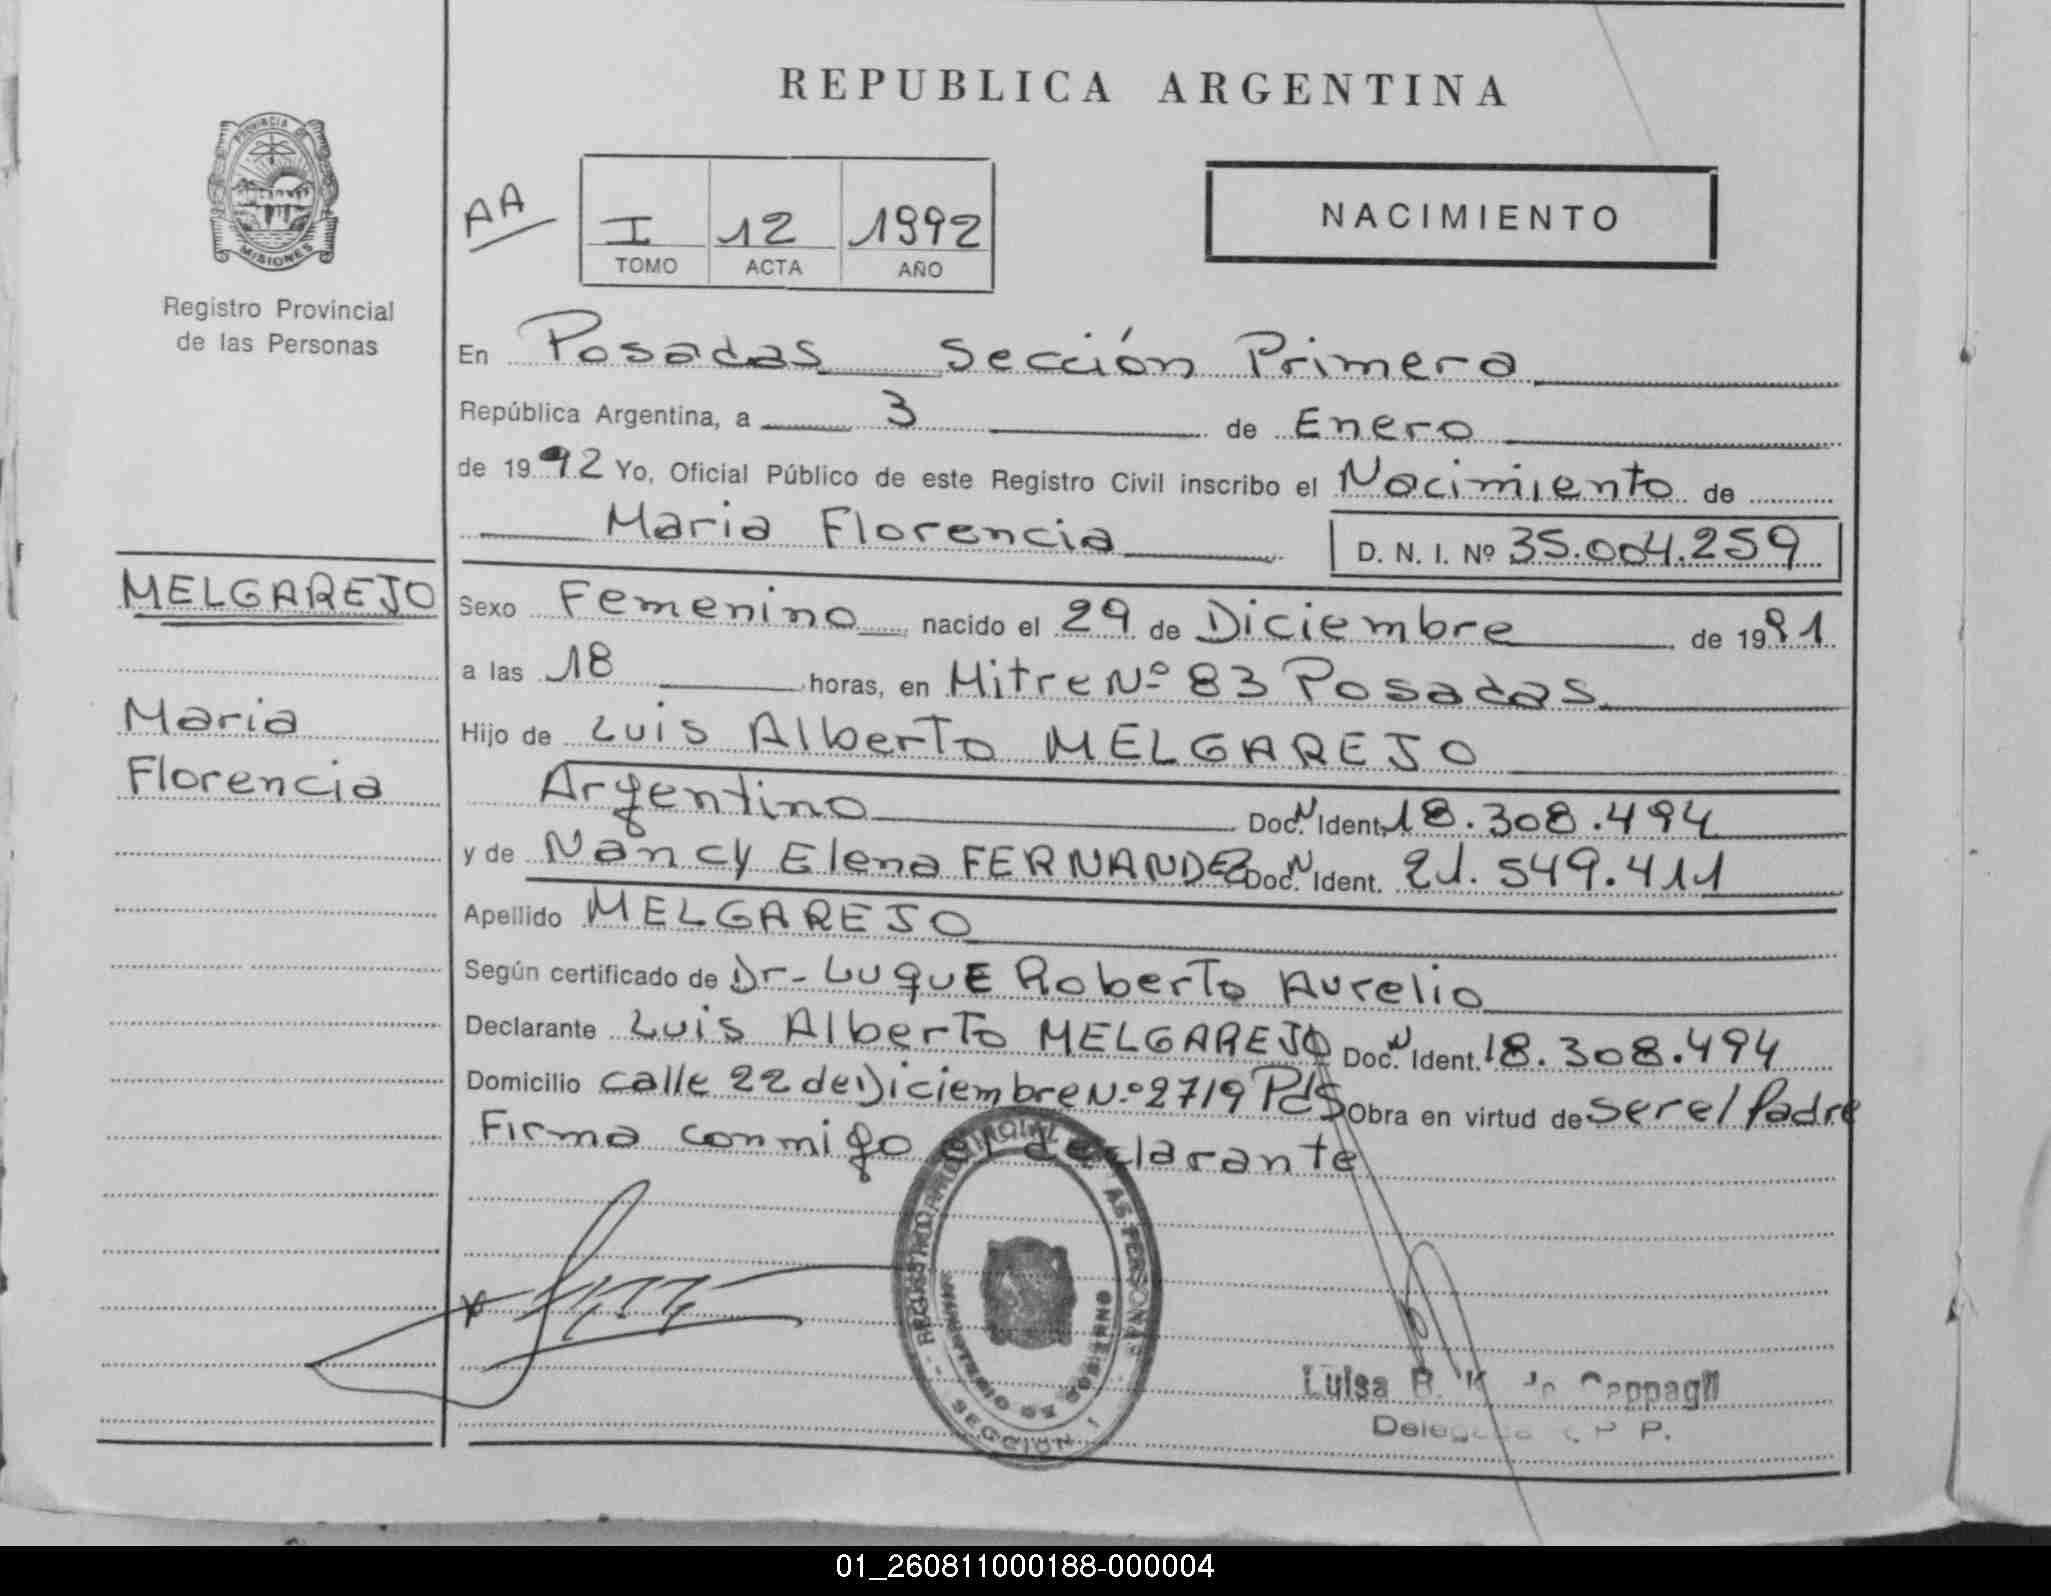 REPUBLICA ARGENTINA
PROVINCIA DE
MISIONES
Registro Provincial
de las Personas
AA
I 12 1992
TOMO ACTA AÑO
NACIMIENTO
En Posadas Sección Primera
República Argentina, a 3 de Enero
de 1992 Yo, Oficial Público de este Registro Civil inscribo el Nacimiento de
Maria Florencia D. N. I. Nº 35.004.259
MELGAREJO
Maria
Florencia
Sexo Femenino nacido el 29 de Diciembre de 1991
a las 18 horas, en Mitre Nº 83 Posadas
Hijo de Luis Alberto MELGAREJO
Argentino Doc. N Ident. 18.308.494
y de Nancy Elena FERNANDEZ Doc. N Ident. 21.549.411
Apellido MELGAREJO
Según certificado de Dr- LuquE Roberto Aurelio
Declarante Luis Alberto MELGAREJO Doc. N Ident. 18.308.494
Domicilio calle 22 de Diciembre Nº 2719 Pds Obra en virtud de ser el Padre
Firma conmigo el declarante
REGISTRO PROVINCIAL DE LAS PERSONAS
MINISTERIO DE GOBIERNO
SECCION 1
Luisa B. K. de Cappagli
R. P. P.
01_260811000188-000004